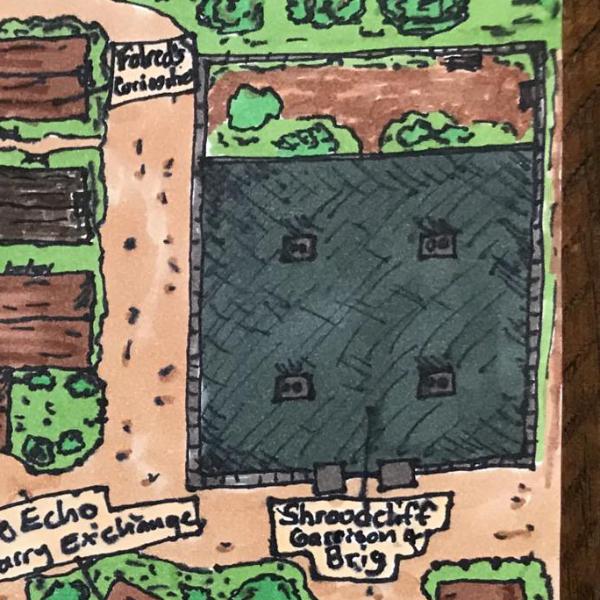 Curiosities
Echo
Exchange
Shroudcliff
Garrison &
Brig